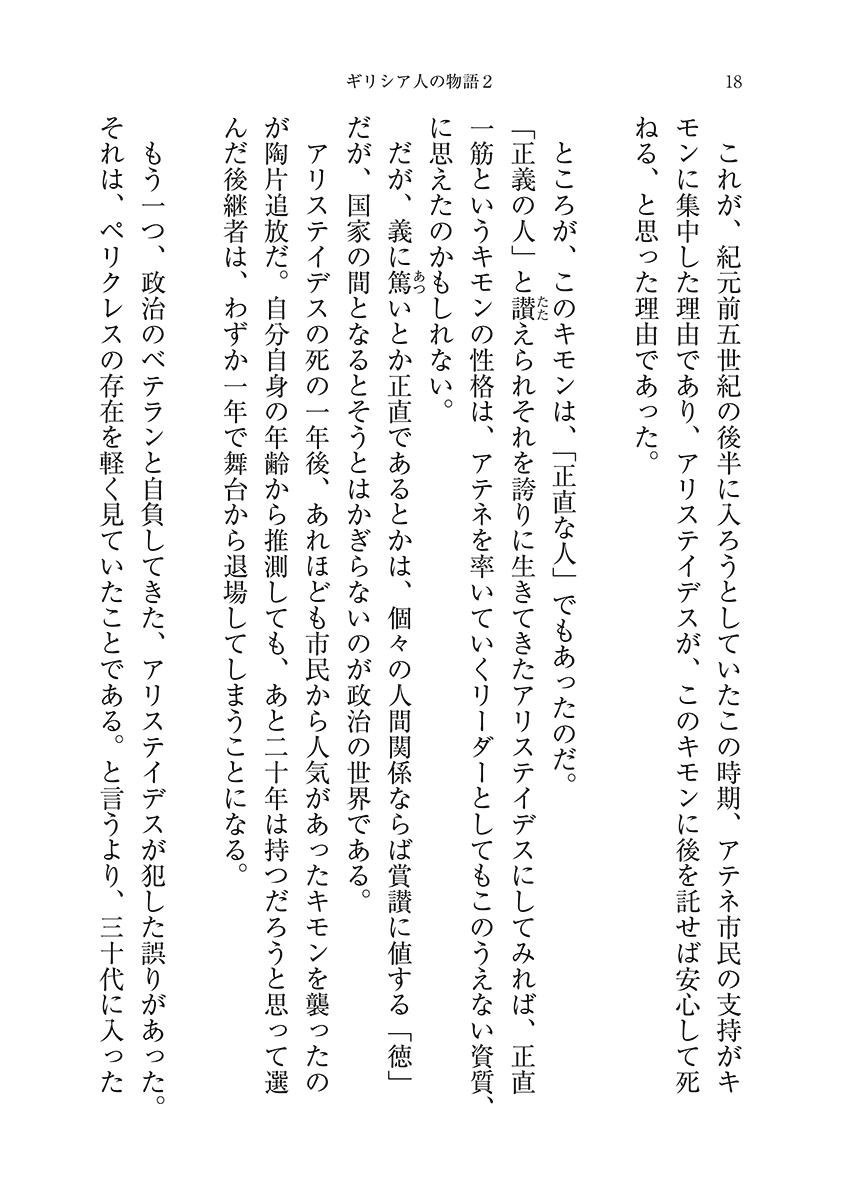 ギリシア人の物語２
18
これが、紀元前五世紀の後半に入ろうとしていたこの時期、アテネ市民の支持がキ
モンに集中した理由であり、アリステイデスが、このキモンに後を託せば安心して死
ねる、と思った理由であった。
ところが、このキモンは、「正直な人」でもあったのだ。
「正義の人」と讃えられそれを誇りに生きてきたアリステイデスにしてみれば、正直
たた
一筋というキモンの性格は、アテネを率いていくリーダーとしてもこのうえない資質、
に思えたのかもしれない。
だが、義に篤いとか正直であるとかは、個々の人間関係ならば賞讃に値する「徳」
あつ
だが、国家の間となるとそうとはかぎらないのが政治の世界である。
アリステイデスの死の一年後、あれほども市民から人気があったキモンを襲ったの
が陶片追放だ。自分自身の年齢から推測しても、あと二十年は持つだろうと思って選
んだ後継者は、わずか一年で舞台から退場してしまうことになる。
もう一つ、政治のベテランと自負してきた、アリステイデスが犯した誤りがあった。
それは、ペリクレスの存在を軽く見ていたことである。と言うより、三十代に入った